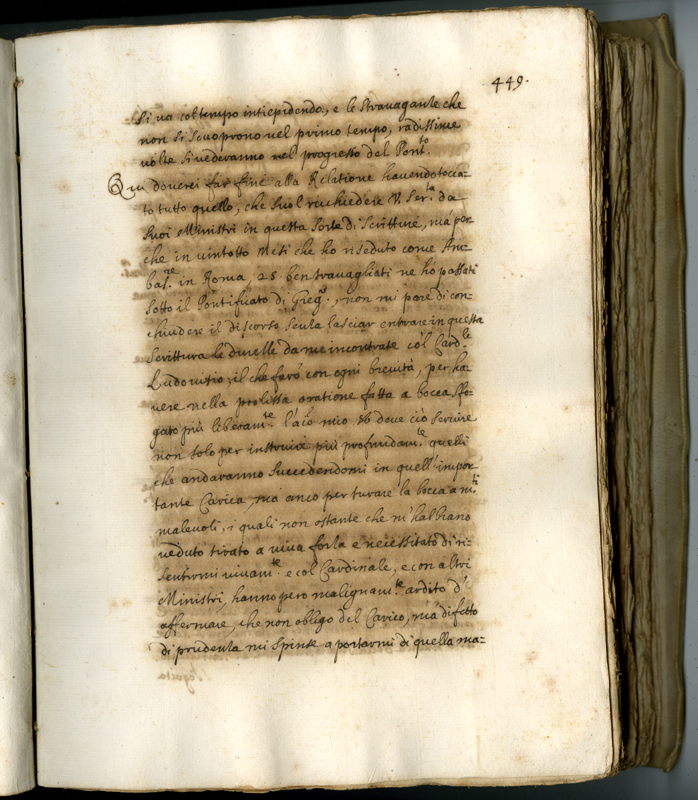 449.
si va col tempo intiepidendo, e le stravaganze che
non si scuoprono nel primo tempo, radissime
volte si vederanno nel progresso del Pont.to
Qui doverei far fine alla Relatione havendo tocca-
to tutto quello, che suol richiedere V. Ser.tà da
suoi Ministri in questa sorte di Scritture, mà per
che in vintotto Mesi che ho riseduto come Am-
bas.re in Roma, 25 ben travagliati ne ho passati
sotto il Pontificato di Greg.o, non mi pare di con-
chiudere il discorso senza lasciar entrare in questa
scrittura le durezze da me incontrate co'l Card.le
Ludovisio, il che farò con ogni brevità, per ha
vere nella prolissa oratione fatta a bocca sfo-
gato più liberam.te l'aĩo mio Et deve ciò servire
non solo per instruire più profundam.te quelli
che andaranno succedendomi in quell'impor
tante Carica, ma anco per turare la bocca a m.ti
malevoli, i quali non ostante che m'habbiano
veduto tirato a viva forza e necessitato di ri-
sentirmi vivam.te e col Cardinale, e con altri
Ministri, hanno però malignam.te ardito d'
affermare, che non obligo del Carico, mà difetto
di prudenza mi spinse a portarmi di quella ma-